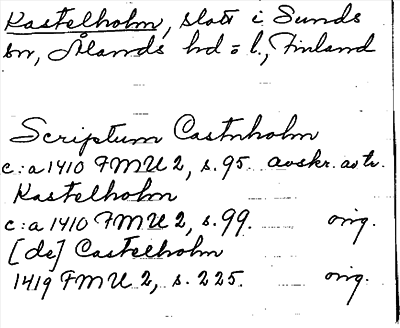 Kastelholm, slott i Sunds
sn, Ålands hd o l., Finland
Scriptum Castnholm
c:a 1410 FMU 2, s. 95. avskr. av tr.
Kastelholm
c:a 1410 FMU 2, s. 99. orig.
[de] Castelholm
1419 FMU 2, s. 225. orig.